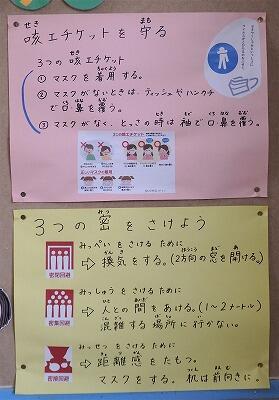 咳エチケットを守る
3つの咳エチケット
① マスクを着用する。
② マスクがないときは、ティッシュやハンカチ
で口鼻を覆う。
③ マスクがなく、とっさの時は袖で口鼻を覆う。
3つの咳エチケット
3つの密をさけよう
みっぺいをさけるために
⇨ 換気をする。(2方向の窓を開ける。)
密閉回避
みっしゅうをさけるために
⇨ 人との間をあける。(1～2メートル)
混雑する場所に行かない。
密集回避
みっせつをさけるために
⇨ 距離感をたもつ。
密接回避
マスクをする。机は前向きに。